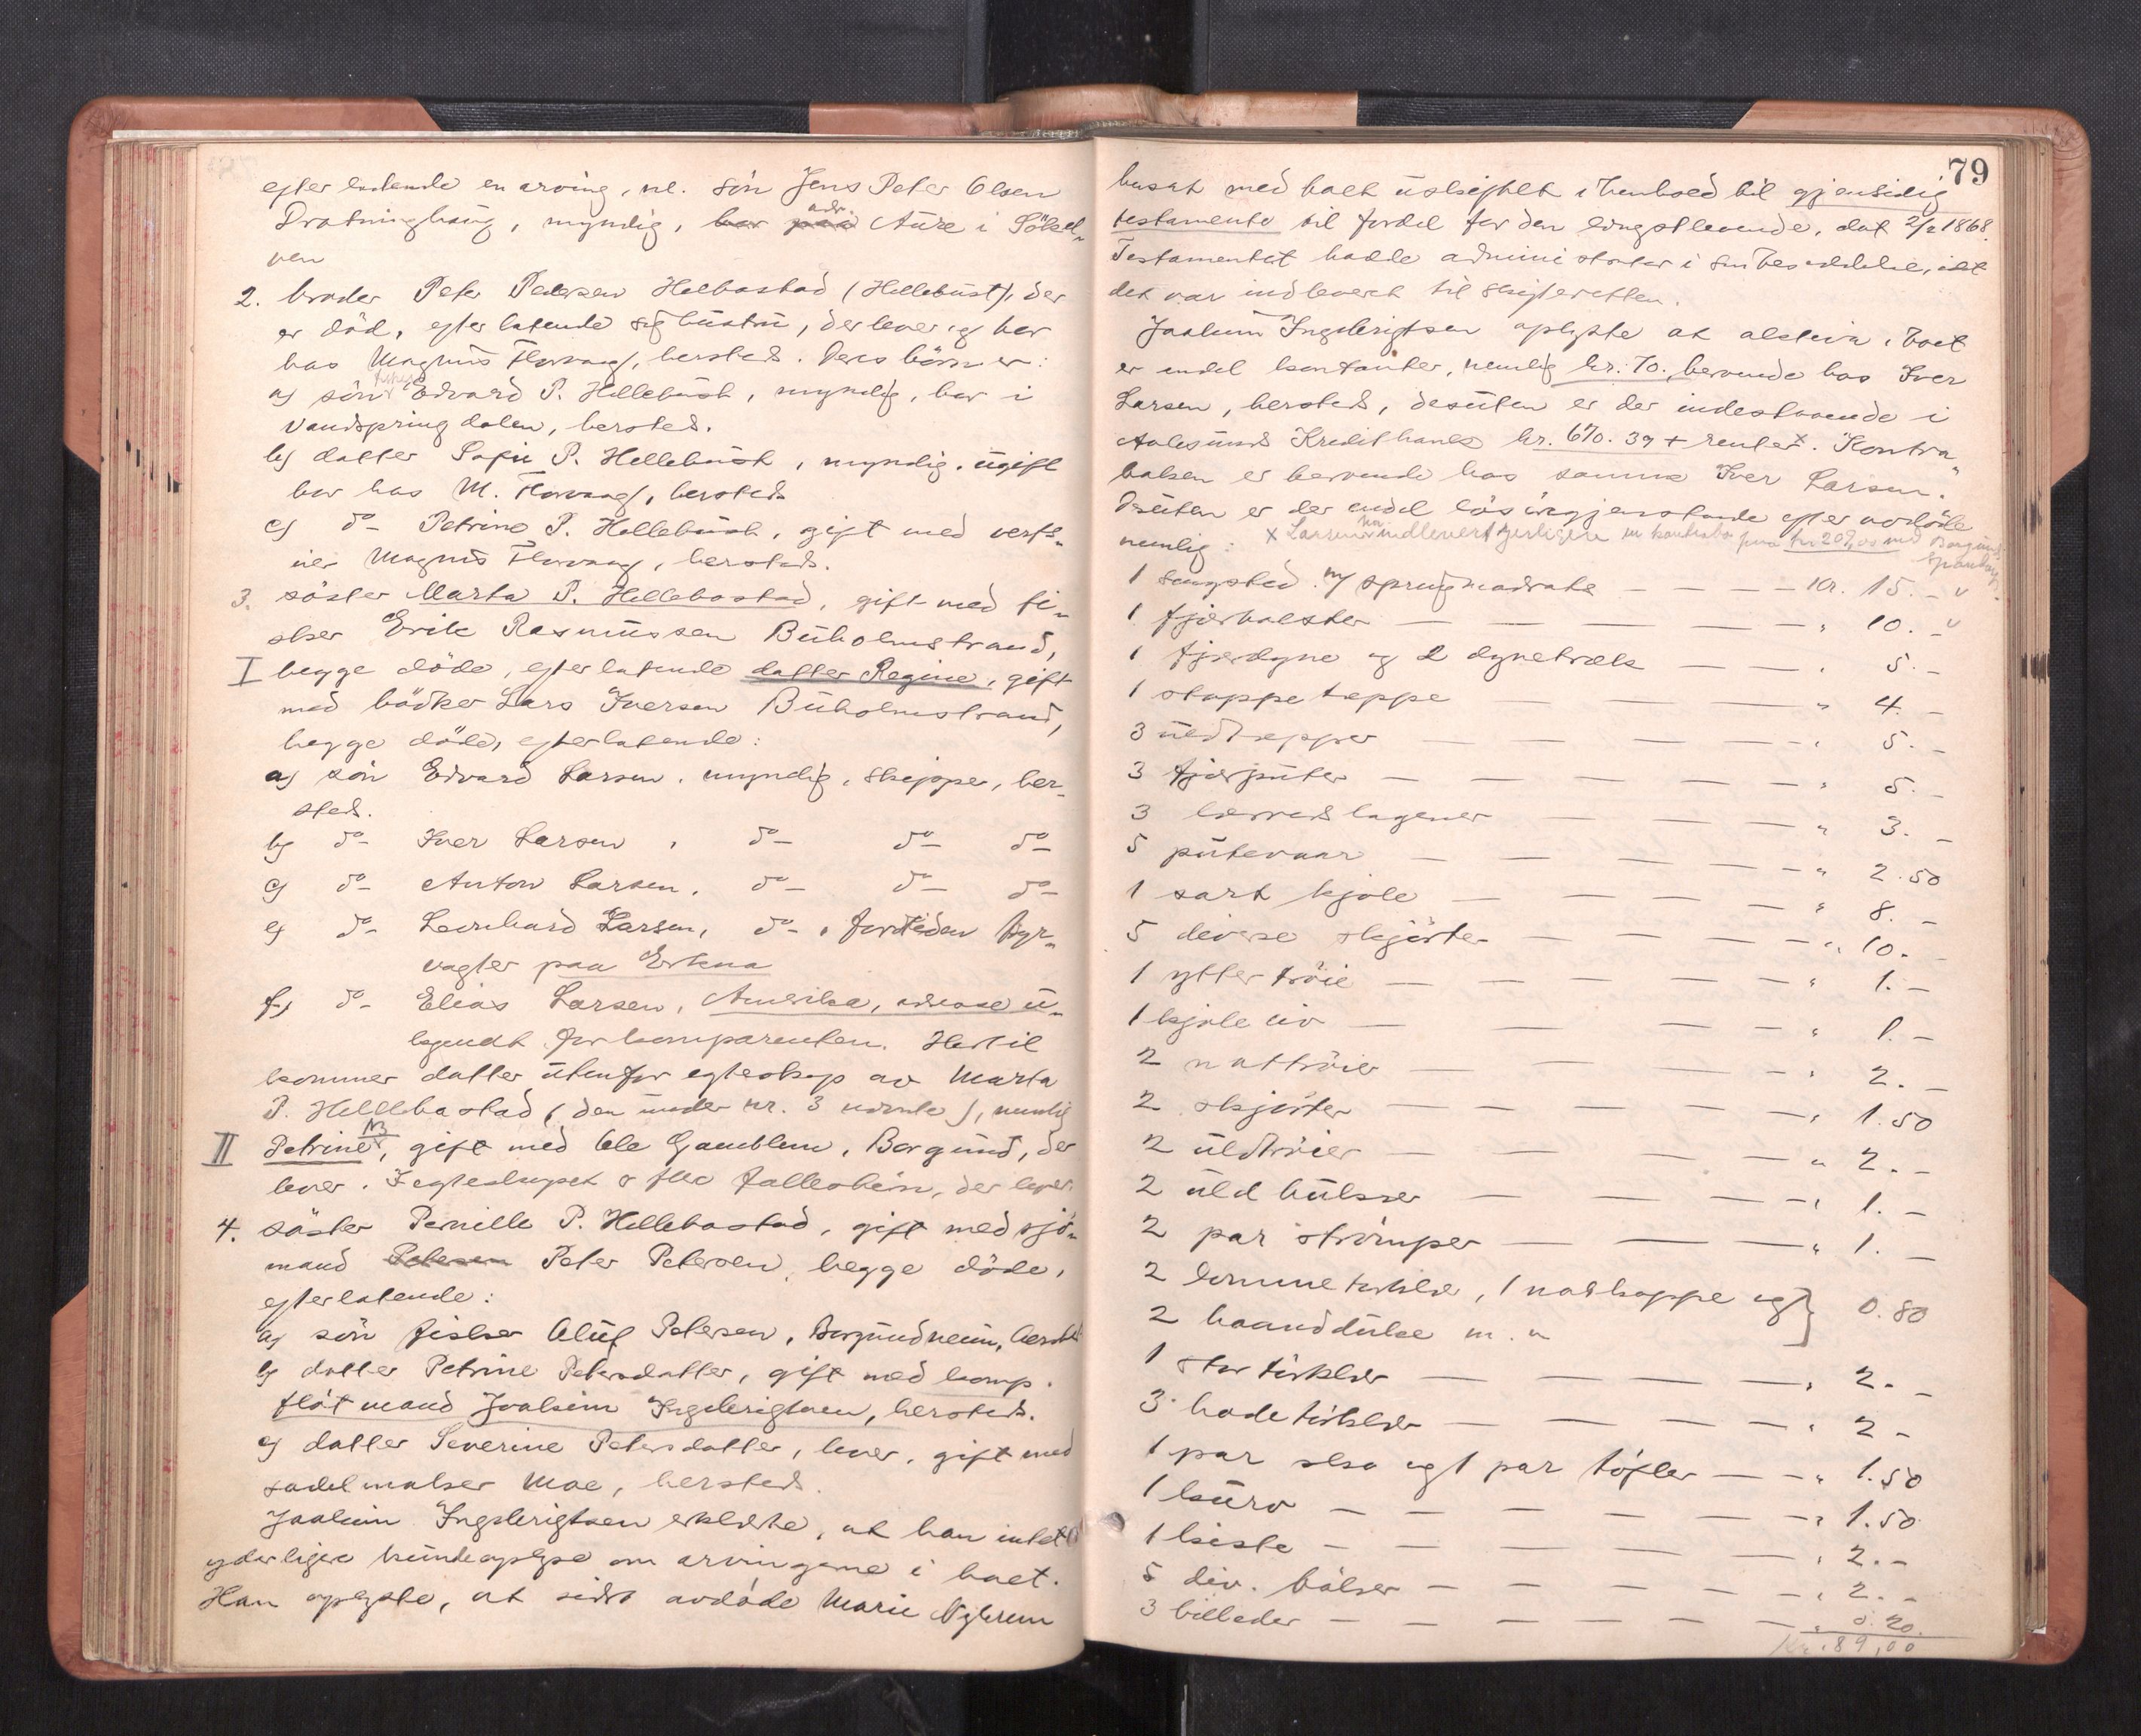 efterlatende en arving, nl. sön Jens Peter Olsen
Dratninghaug, myndig, bor paa adr. Aure i Sökel„
ven
2. broder Peter Pedersen Hellebostad (Hellebust), der
er död, efterlatende sig hustru, der lever og bor
hos Magnus Florvaag, hersteds. Deres börn er:
a) sön fisker Edvard P. Hellebust, myndig, bor i
Vandspringdalen, hersteds.
b) datter Sofie P. Hellebust, myndig, ugift
bor hos M. Florvaag, hersteds
c) do Petrine P. Hellebust, gift med verts„
nes Magnus Florvaag, hersteds.
3. söster Marta P. Hellebostad, gift med fi„
sker Erik Rasmussen Buholmstrand,
I begge döde, efterlatende datter Regine, gift
med bödker Lars Iversen Buholmstrand,
begge döde, efterlatende:
a) sön Edvard Larsen, myndig, skipper, her„
steds.
b) do Iver Larsen, do do do
c) do Anton Larsen, do do do
e) do Leonhard Larsen, do, fortiden fyr„
vagter paa Erkna
f) do Elias Larsen, Amerika, adresse u„
kjendt for komparenten. Hertil
kommer datter utenfor egteskap av Marta
P. Hellebostad (den under nr. 3 nævnte), nemlig
II Petrine NB, gift med Ole Gamblem, Borgund, der
lever. I egteskapet er flere fællesbörn, der lever.
4. söster Pernille P. Hellebostad, gift med sjö„
mand Petersen Peter Petersen, begge döde,
efterlatende:
a) sön fisker Oluf Petersen, Borgundveien, hersteds
b) datter Petrine Petersdatter, gift med komp.
flötmand Joakim Ingebrigtsen, hersteds.
c) datter Severine Petersdatter, lever, gift med
sadelmaker Moe, hersteds.
Joakim Ingebrigtsen erklærte, at han intet
yderligere kunde oplyse om arvingerne i boet.
Han oplyste, at sidst avdöde Marie Nybrun
79
besat med boet uskiftet i henhold til gjensidig
testamente til fordel for den længstlevende, dat 2/2 1868.
Testamentet hadde administrator i sin besiddelse, idet
det var indlevert til skifteretten.
Joakim Ingebrigtsen oplyste at aktiva i boet
er endel kontanter, nemlig kr. 70. beroende hos Iver
Larsen, hersteds, desuten er der indestaaende i
Aalesunds Kreditbank kr. 670.39 + renter x. Kontra„
boken er beroende hos samme Iver Larsen.
Desuten er der endel lösöregjenstande efter avdöde
nemlig: x Larsen har indlevert yderligere en kontrabok paa kr 207,00 ved Borgunds Sparebank.
1 sengested m/ springmadrats — — — kr. 15. –
1 fjærbolster — — — " 10. –
1 fjærdyne og 2 dynetræk — — " 5. –
1 stoppeteppe — — — " 4. –
3 uldtepper — — — " 5. –
3 fjærputer — — — " 5. –
3 lerretslagener — — — " 3. –
5 putevaar — — — " 2.50
1 sort kjole — — — " 8. –
5 diverse skjörter — — — " 10. –
1 yttertröie — — — " 1. –
1 kjoleliv — — — " 1. –
2 nattröier — — — " 2. –
2 skjörter — — — " 1.50
2 uldtröier — — — " 2. –
2 uld bukser — — — " 1. –
2 par strömper — — — " 1. –
2 lommetörklær, 1 natkappe og }
2 haandduke m. m } 0.80
1 stor törklær — — — " 2. –
3 hodetörklær — — — " 2 –
1 par sko og 1 par töfler — — " 1.50
1 kurv — — — " 1.50
1 kiste — — — " 2. –
5 div. böker — — — " 2. –
3 billeder — — — " 0.20.
Kr. 89,00